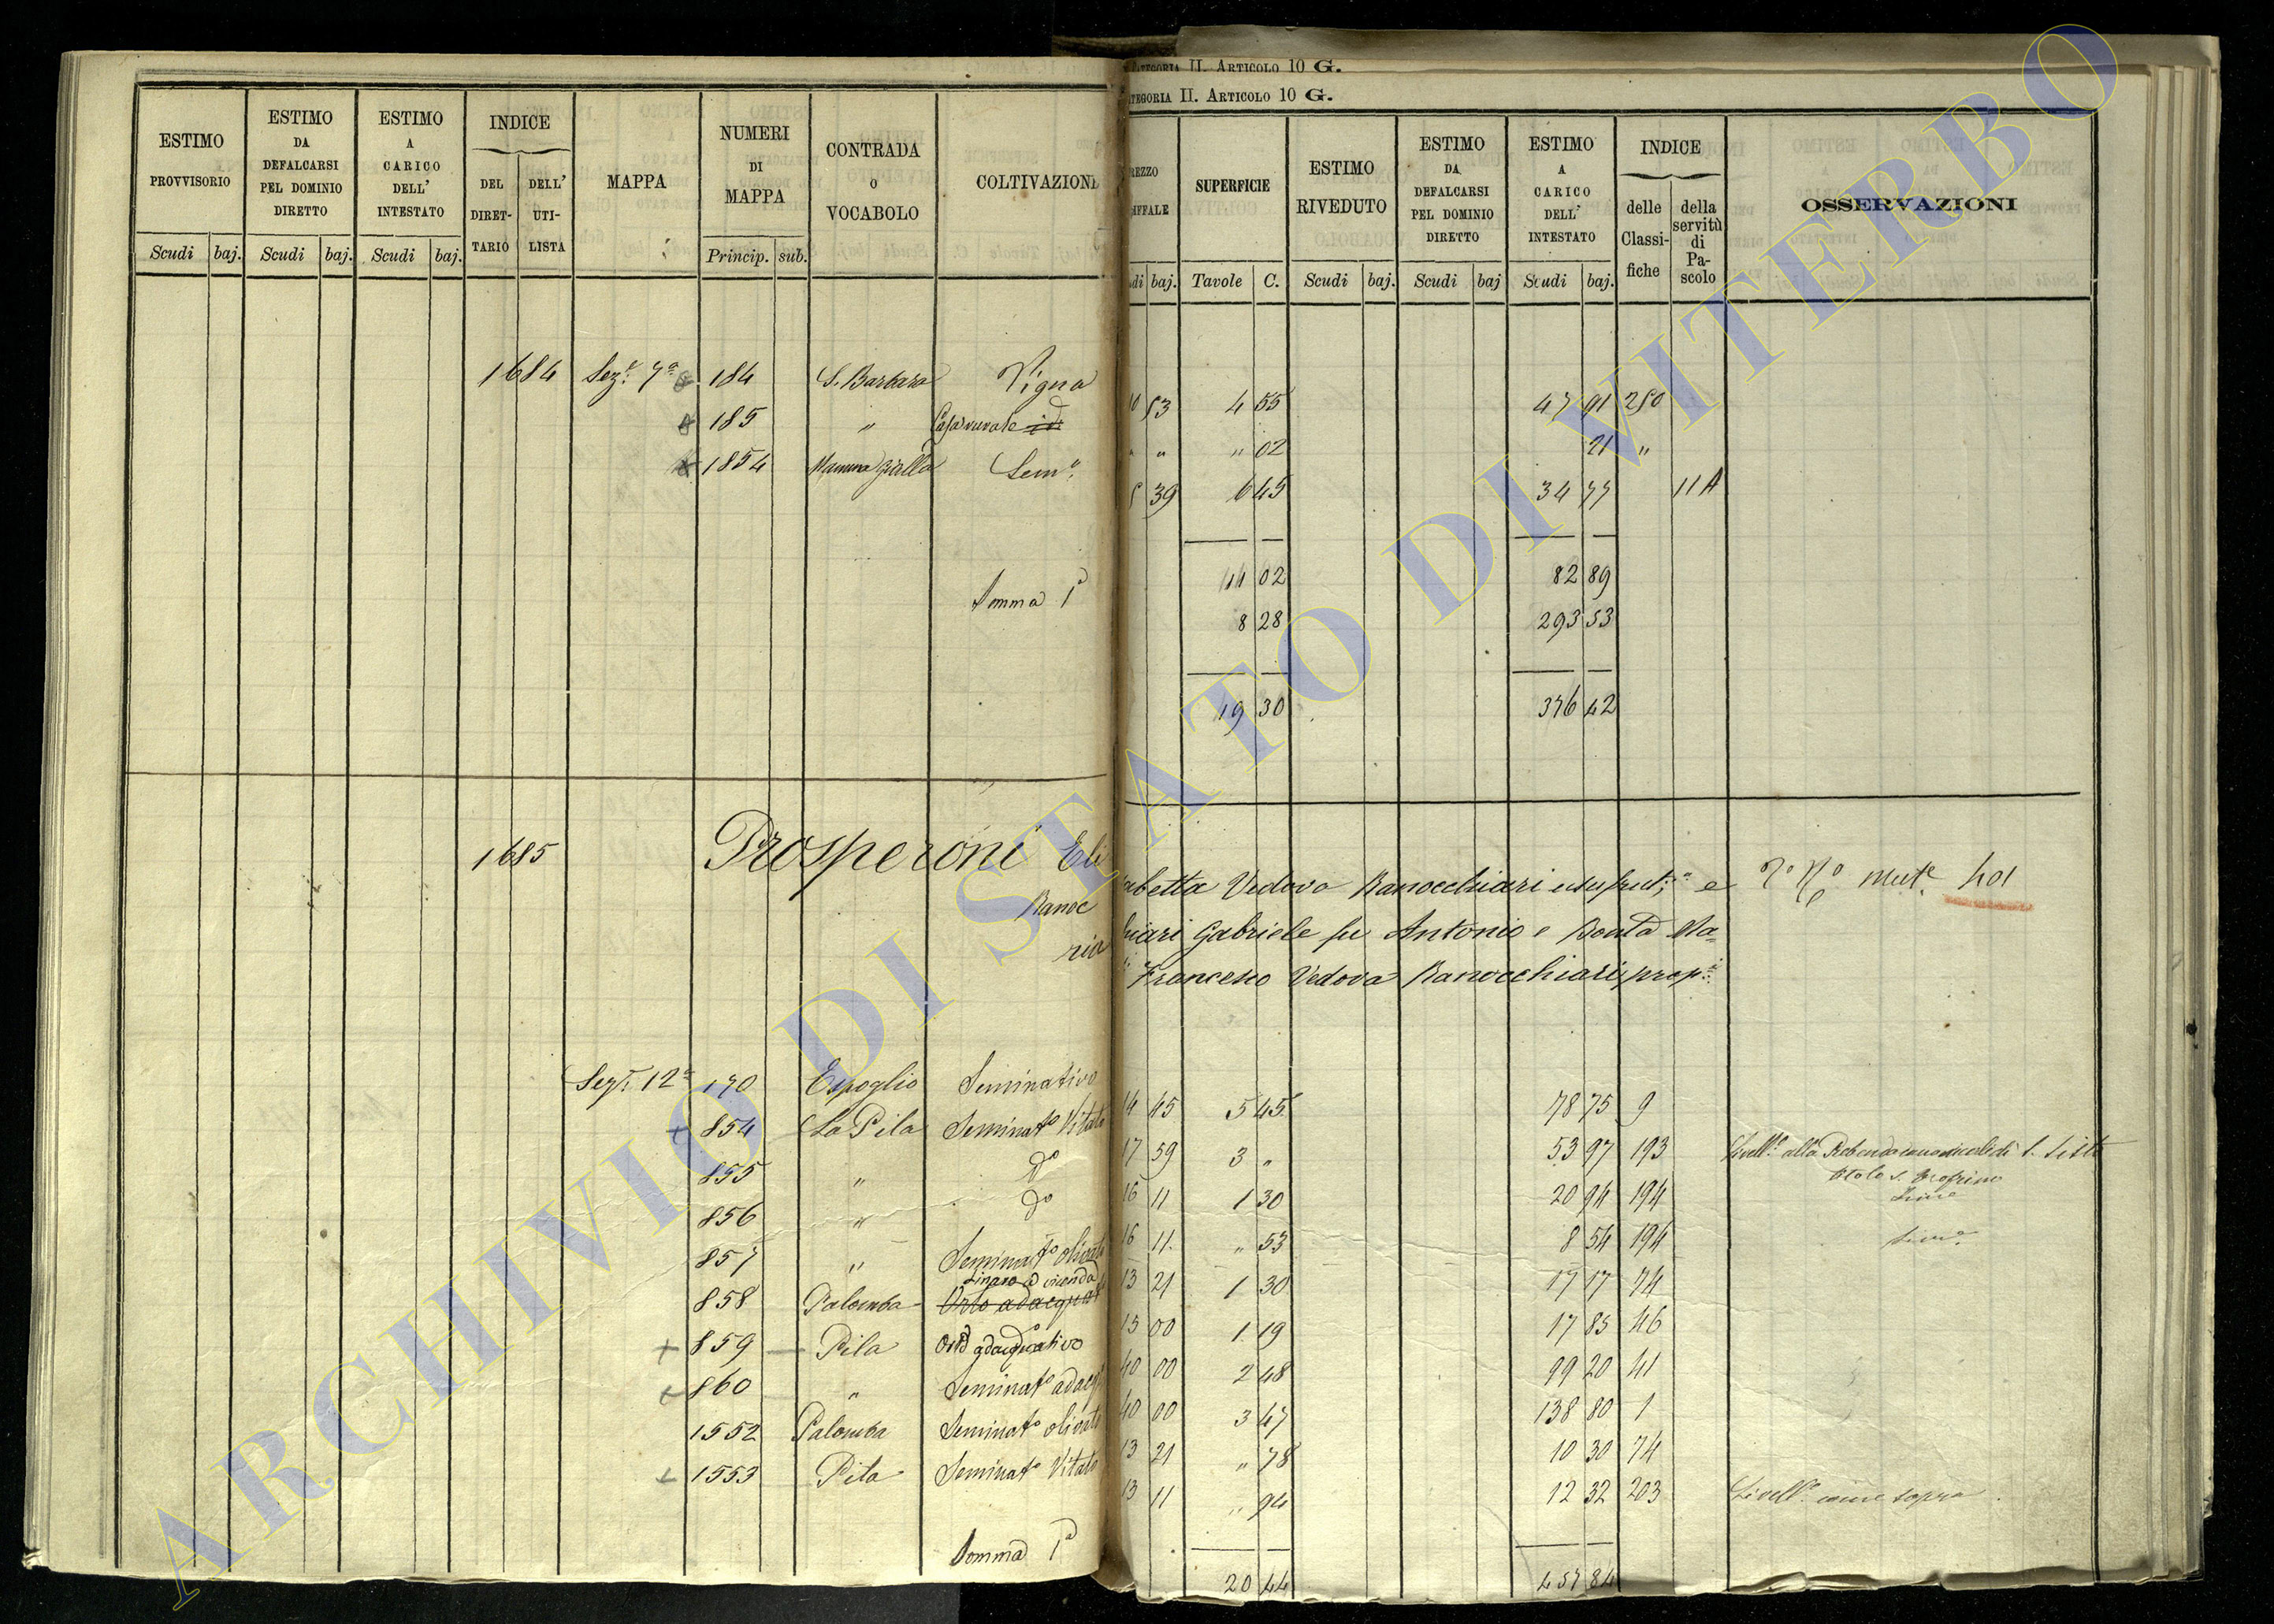 CATEGORIA II. ARTICOLO 10 G.
ATEGORIA II. ARTICOLO 10 G.
ESTIMO PROVVISORIO Scudi baj.
ESTIMO DA DEFALCARSI PEL DOMINIO DIRETTO Scudi baj.
ESTIMO A CARICO DELL' INTESTATO Scudi baj.
INDICE DEL DIRET- TARIO DELL' UTI- LISTA
MAPPA
NUMERI DI MAPPA Princip. sub.
CONTRADA O VOCABOLO
COLTIVAZIONE
REZZO IFFALE di baj.
SUPERFICIE Tavole C.
ESTIMO RIVEDUTO Scudi baj.
ESTIMO DA DEFALCARSI PEL DOMINIO DIRETTO Scudi baj
ESTIMO A CARICO DELL' INTESTATO Scudi baj.
INDICE delle Classi- fiche della servitù di Pa- scolo
OSSERVAZIONI
1684 Sez.e 7a 184 S. Barbara Vigna 10 53 4 55 47 91 250
185 " Casa rurale id " " " 02 21 "
1854 Mamma Gialla Sem.o 5 39 6 45 34 77 11A
11 02 82 89
Somma 1a 8 28 293 53
19 30 376 42
1685 Prosperoni Elisabetta Vedova Ranocchiari usufrut.a e
Ranocchiari Gabriele fu Antonio e Ma-
ria Francesco Vedova Ranocchiari, prop.i
Sez.e 12a 170 Espoglio Seminativo 14 45 5 45 78 75 9
+ 854 La Pila Seminato Vitato 17 59 3 " 53 97 193 Livell.o alla Prebenda canonicale di S. Sisto
855 " do 16 11 1 30 20 94 194
856 " do 16 11 " 53 8 54 194
857 " Seminato olivato 13 21 1 30 17 17 74
858 Palomba Orto adacquat Linaro a vicenda 15 00 1 19 17 85 46
+ 859 Pila Orto adacquativo 40 00 2 48 99 20 41
+ 860 " Seminato adacq 40 00 3 47 138 80 1
1552 Palomba Seminato olivato 13 21 " 78 10 30 74
+ 1553 Pila Seminato Vitato 13 11 " 94 12 32 203 Livell.o come sopra
Somma 1a 20 44 457 84
ARCHIVIO DI STATO DI VITERBO